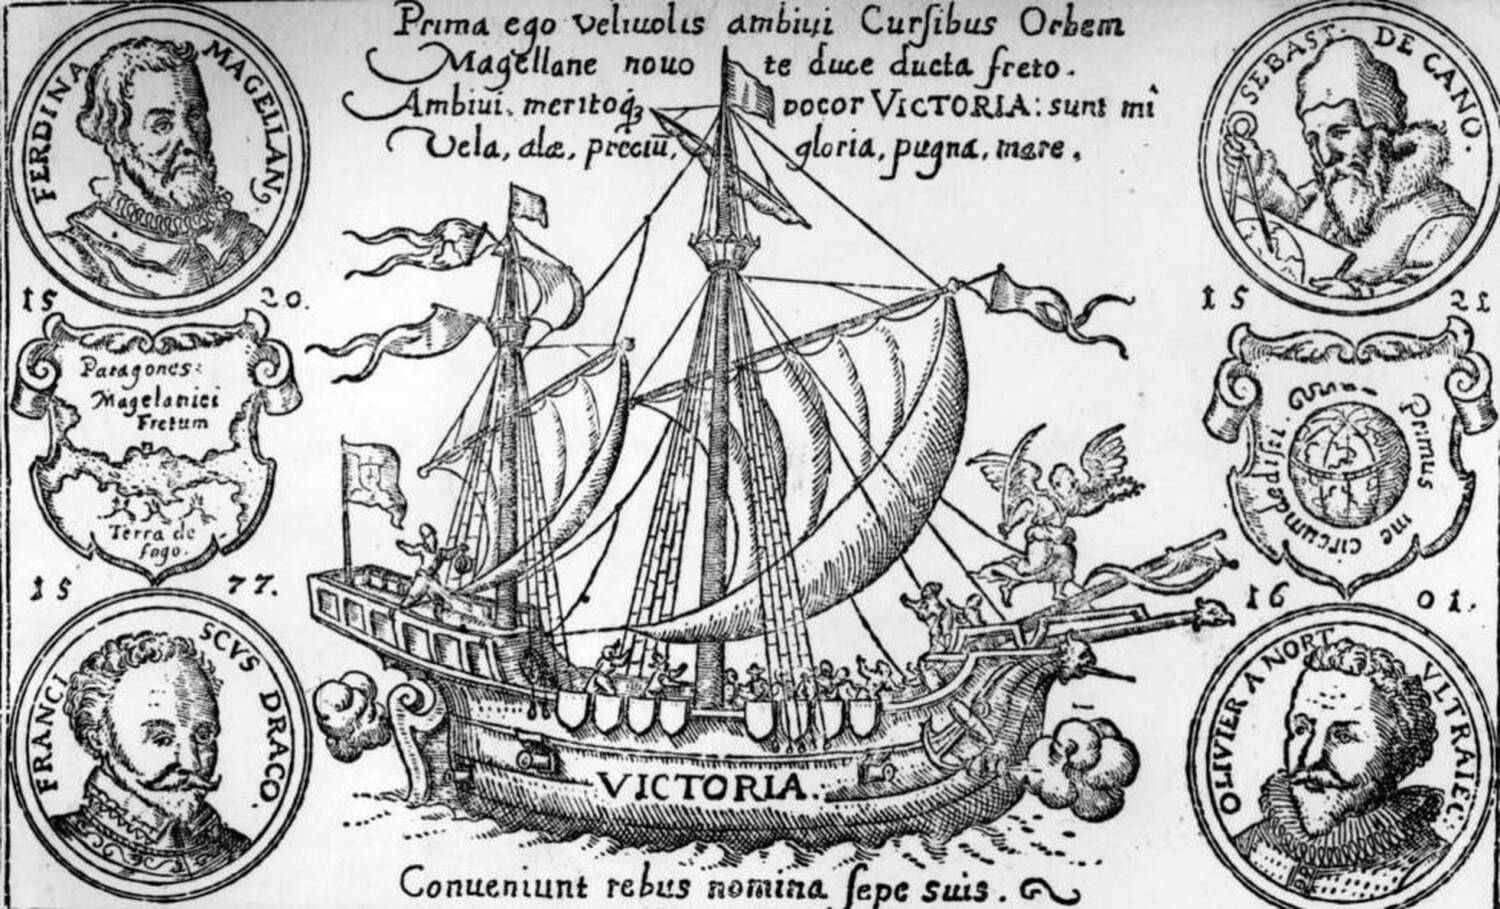 Prima ego veliuolis ambiui Curſibus Orbem
Magellane nouo te duce ducta freto.
Ambiui, meritoq̃ʒ vocor VICTORIA: sunt mî
Vela, alæ, preciũ, gloria, pugna, mare,
FERDINA MAGELLAN
SEBAST. DE CANO.
15 20.
15 21
Patagones:
Magelanici
Fretum
Terra de
fogo.
Primus me circumdediſti.
15 77.
16 01.
FRANCISCVS DRACO.
OLIVIER A NORT VLTRAIECT.
VICTORIA.
Conueniunt rebus nomina ſepe suis.